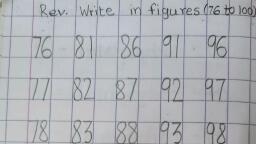 Rev. Write in figures (76 to 100)
76 81 86 91 96
77 82 87 92 97
78 83 88 93 98